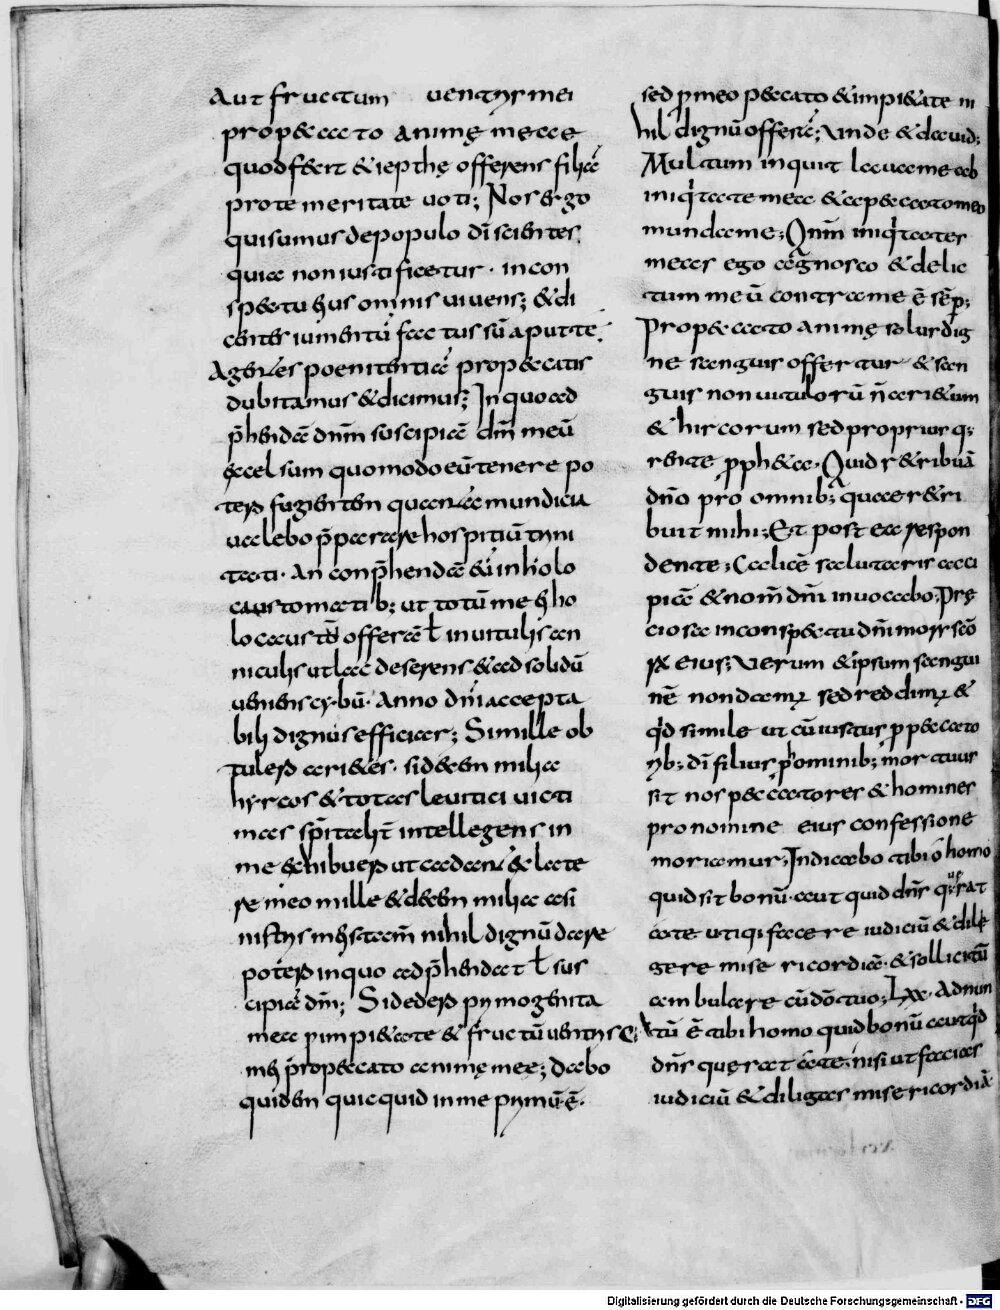 Aut fructum ventris mei
pro peccato animę meae
quod fecit & iepthę offerens filiā
pro temeritate voti; Nos ergo
qui sumus de populo dī scientes
quia non iustificatur · in con
spectu eius omnis vivens; & di
centes iumentū factus sū aput te
Agentes poenitentiā pro peccatis
dubitamus & dicimus; In quo ad
p̄hendā dn̄m suscipiā dm̄ meū
excelsum quomodo eū tenere po
tero fugientem quam & mundicia
valebo p̄parare hospitiū tyni
tati · An conp̄hendā eū in holo
caustomatib; ut totū me ei ho
locaustū offerā ł in vitulis an
niculis ut lac deserens & ad solidū
veniens cybū · Anno dn̄i accepta
bili dignus efficiar; Si mille ob
tulero arietes · si decem milia
hyrcos & totas levitici victi
mas spītalit̄ intellegens in
me exhibuero ut addam & late
re meo mille & decem milia casi
nisterys meis tam̄ nihil dignū dare
potero in quo adp̄hendat ł sus
cipiā dm̄; Si dedero primogenita
mea p impietate & fructū ventris
mei pro peccato animę meę; dabo
quidem quicquid in me primū ē ·
sed p meo peccato & impietate ni
hil dignū offerā; Unde & david;
Multum inquit lava me ab
iniqitate mea & a peccato meo
munda me; Qnm̄ iniqitates
meas ego agnosco & delic
tum meū contra me ē sēp;
Pro peccato animę solus dig
ne sanguis offertur & san
guis non vitulorū n̄ arietum
& hircorum sed proprius q;
rente ppheta · Quid retribuā
dn̄o pro omnib; quae retri
buit mihi; Et post ea respon
dente; Calicē salutaris acci
piā & nom̄ dn̄i invocabo; Prę
ciosa in conspectu dn̄i mors scō
rx eius; Verum & ipsum sangui
nē non damꝫ sed redimꝫ &
qd simile ut cū iustus p peccato
rib; dī filius p ominib; mortuus
sit nos peccatores & homines
pro nomine eius confessione
moriamur; Indicabo tibi o homo
quid sit bonū · aut quid dn̄s querat
a te utiqi facere iudiciū & dilę
gere misericordiā · & sollicitū
ambulare cū dō tuo; Lxx · Adnun
tū ē tibi homo quid bonū aut qd
dn̄s quęrat a te · nisi ut facias
iudiciū & diligas misericordiā
Digitalisierung gefördert durch die Deutsche Forschungsgemeinschaft - DFG